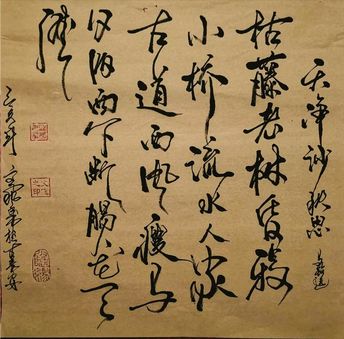 天净沙 秋思 马致远
枯藤老树昏鸦
小桥流水人家
古道西风瘦马
夕阳西下断腸人在天
涯